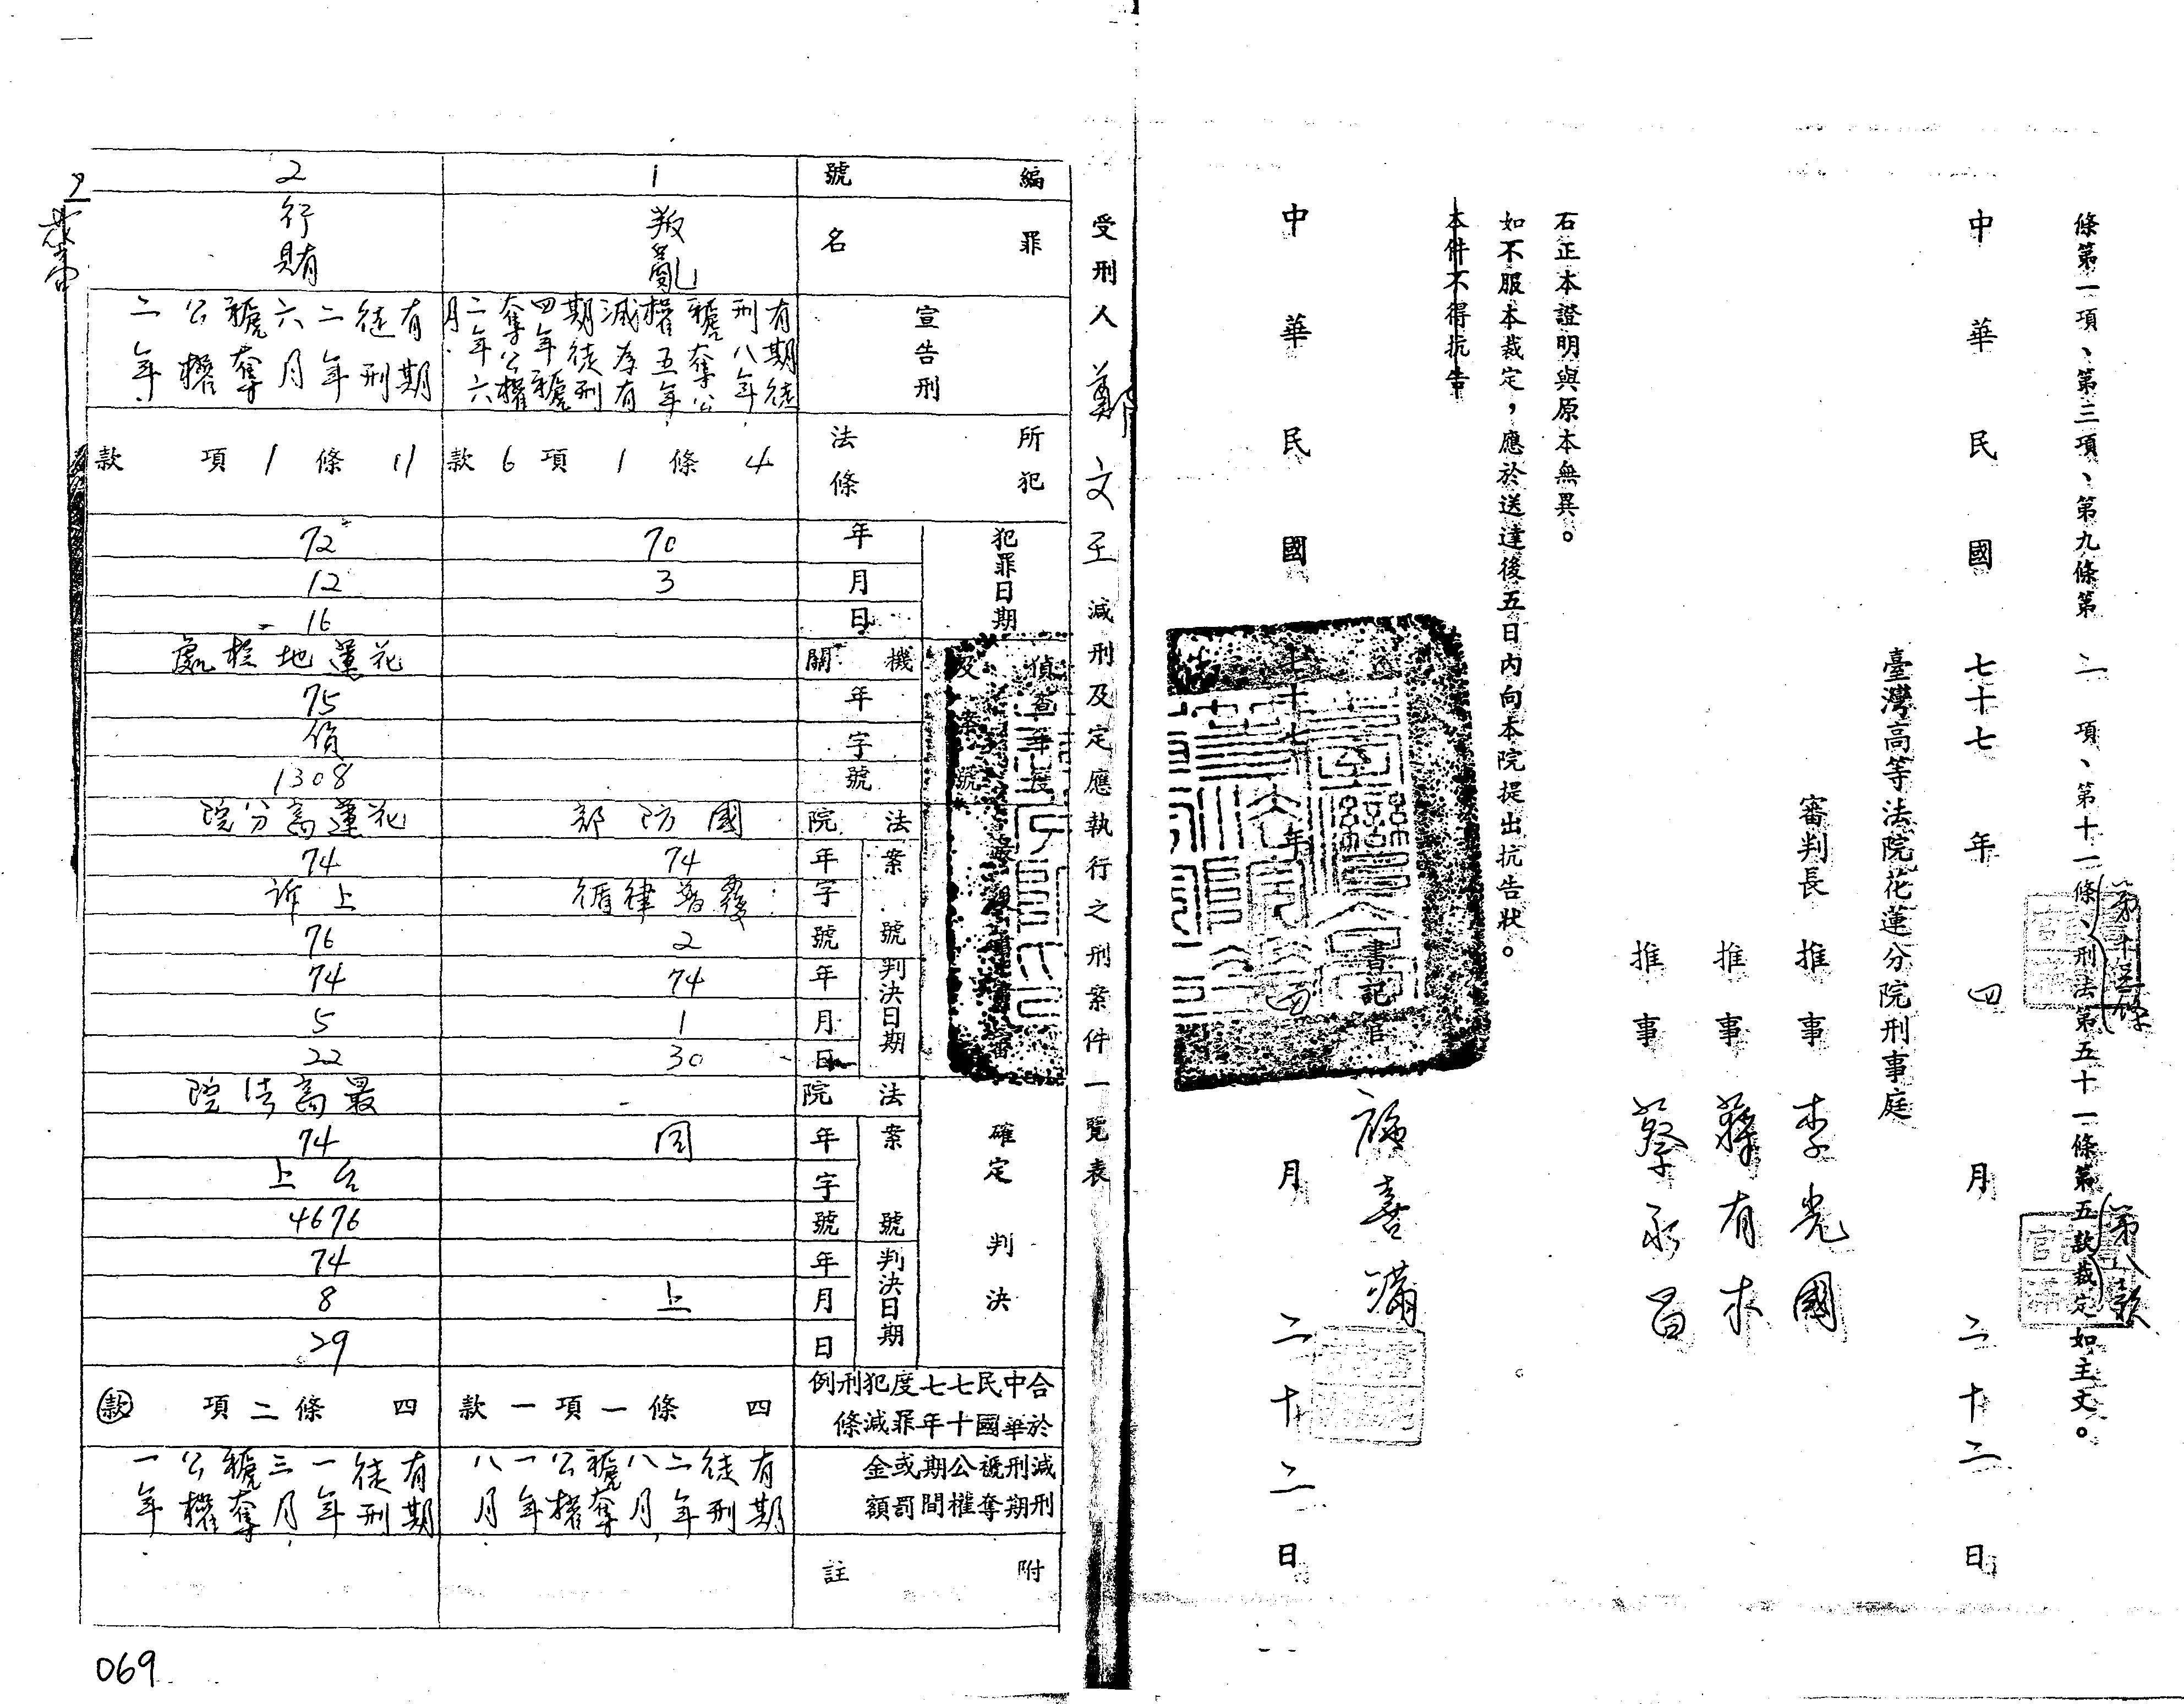 條第一項、第三項、第九條第二項、第十一條、刑法第五十一條第五款裁定如主文。
第八款
中華民國七十七年四月二十二日
臺灣高等法院花蓮分院刑事庭
審判長推事李光國
推事蔣有木
推事蔡永昌
右正本證明與原本無異。
如不服本裁定，應於送達後五日內向本院提出抗告狀。
本件不得抗告
書記官
中華民國七十七年四月二十二日
受刑人鄭文玉減刑及定應執行之刑案件一覽表
編號 1 2
罪名 叛亂 行賄
宣告刑 有期徒刑八年褫奪公權五年減為有期徒刑四年褫奪公權二年六月 有期徒刑二年六月褫奪公權二年
所犯法條 4條1項6款 11條1項款
犯罪日期
年 70 72
月 3 12
日 16
偵查機關及案號
機關 花蓮地檢處
年 75
字 偵
號 1308
法院 國防部 花蓮高分院
案號
年 74 74
字 覆普律循 上訴
號 2 76
判決日期
年 74 74
月 1 5
日 30 22
確定判決
法院 最高法院
案號
年 同 74
字 台上
號 4676
判決日期
年 74
月 上 8
日 29
合於中華民國七十七年度罪犯減刑條例 四條一項一款 四條二項款
減刑刑期褫奪公權期間或罰金額 有期徒刑二年八月褫奪公權一年八月 有期徒刑一年三月褫奪公權一年
附註
069